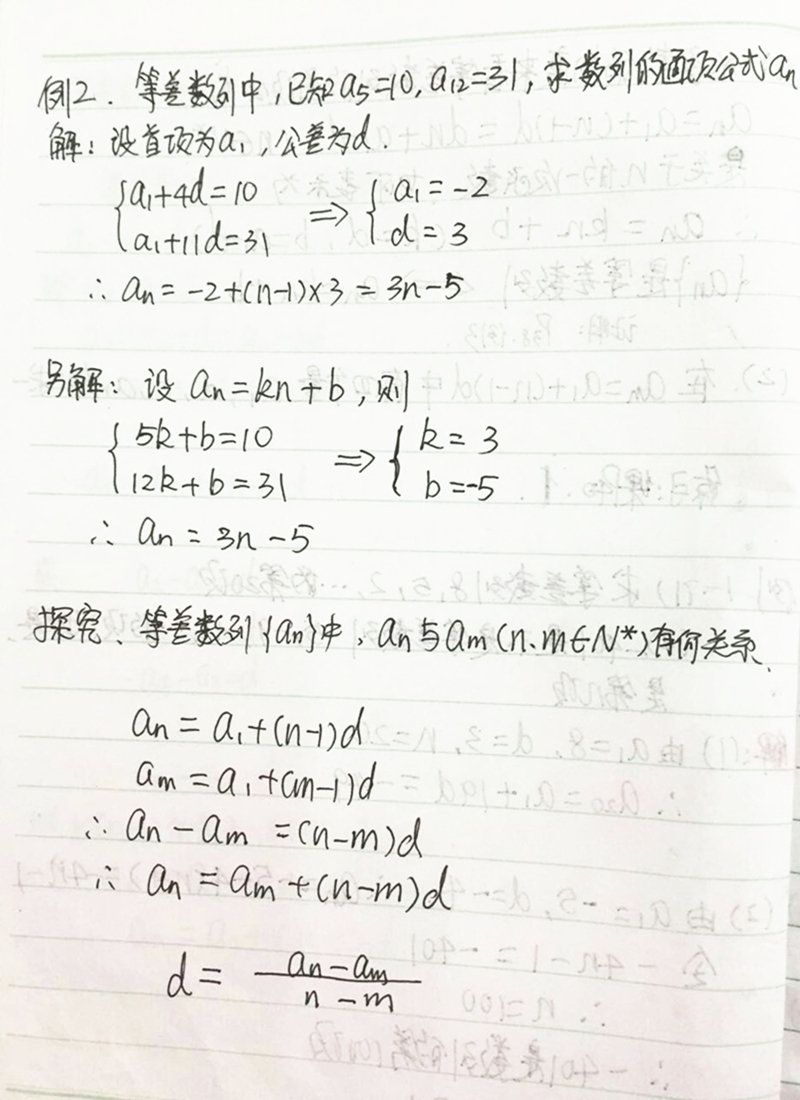 例2. 等差数列中,已知a5=10, a12=31, 求数列的通项公式an
解:设首项为a1, 公差为d.
{a1+4d=10 ⇒ {a1=-2
a1+11d=31 d=3
∴ an=-2+(n-1)×3=3n-5
另解:设an=kn+b,则
{5k+b=10 ⇒ {k=3
12k+b=31 b=-5
∴ an=3n-5
探究、等差数列{an}中,an与am(n、m∈N*)有何关系、
an=a1+(n-1)d
am=a1+(m-1)d
∴ an-am=(n-m)d
∴ an=am+(n-m)d
d= an-am
n-m